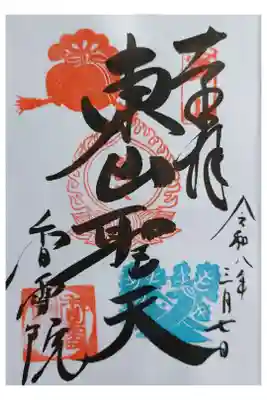 奉拝
令和八年三月七日
東山聖天
香雪院